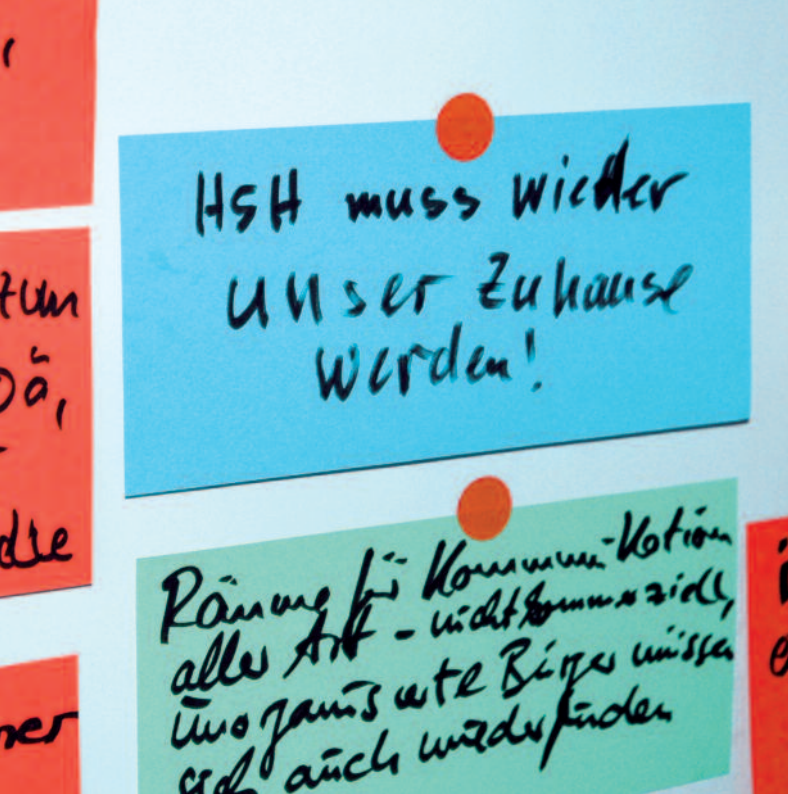 zum
Dä,
die
ner
HSH muss wieder
unser Zuhause
werden!
Räume für Kommunikation
aller Art - nichtkommerziell,
Unorganisierte Bürger müssen
sich auch wiederfinden